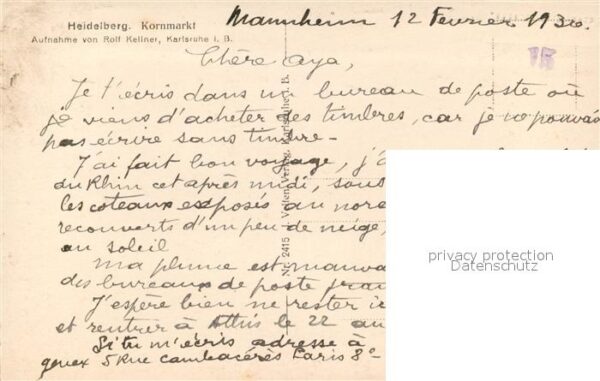 Heidelberg. Kornmarkt
Aufnahme von Rolf Kellner, Karlsruhe i. B.
Mannheim 12 Février 1930.
15
Chère Aya,
Je t'écris dans un bureau de poste où
je viens d'acheter des timbres, car je ne pouvais
pas écrire sans timbre -
J'ai fait bon voyage, j'
du Rhin cet après midi, sous
les coteaux exposés au nord
recouverts d'un peu de neige,
au soleil
Ma plume est mauva
des bureaux de poste fran
J'espère bien ne rester ic
et rentrer à Athis le 22 au
Si tu m'écris adresse à
5 Rue Cambacérès Paris 8e -
Nr. 2415 Velten, Verlag, Karlsruhe i. B.
privacy protection
Datenschutz